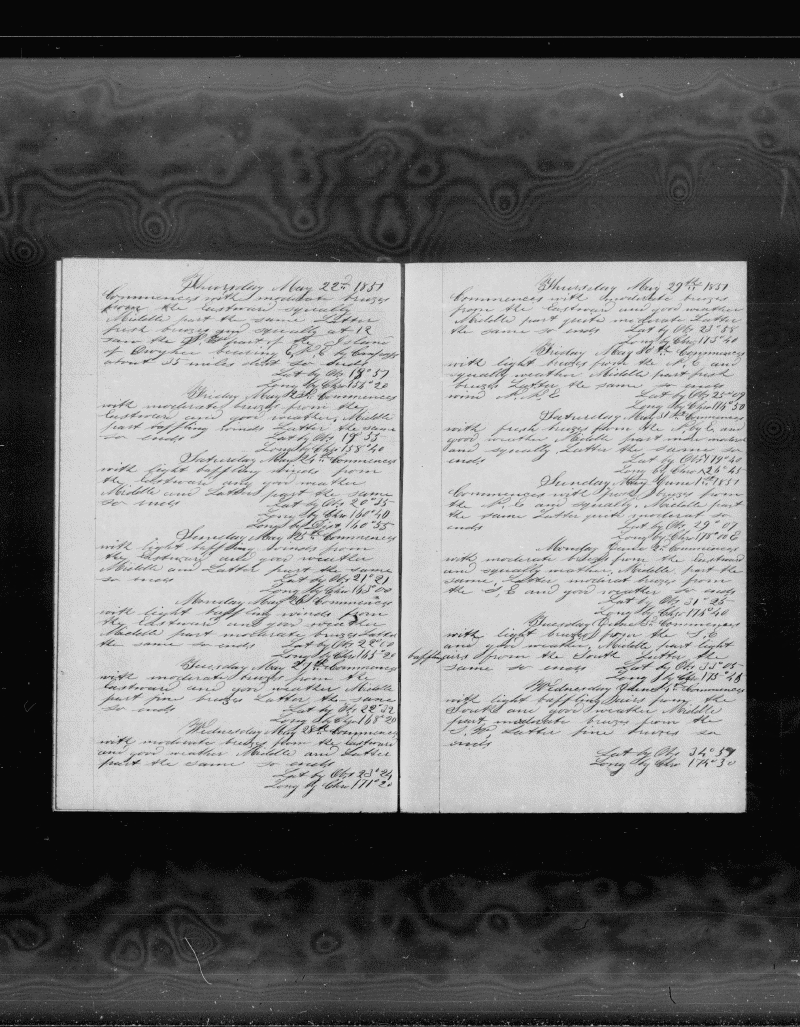 Thursday May 22nd 1851
Commences with moderate breezes
from the Eastward squally
Middle part the same Latter
fresh breezes and squally at 12
saw the part of the Island
of Owyhee bearing by Compass
about 35 miles dist so ends
Lat by Obs 19° 57
Long by Chro 156° 20
Friday May 23d Commences
with moderate breezes from the
Eastward and good weather, Middle
part baffling winds Latter the same
so ends Lat by Obs 19° 55
Long by Chro 158° 40
Saturday May 24th Commences
with light baffling winds from
the Eastward and good weather
Middle and Latter part the same
so ends Lat by Obs 20° 35
Long by Chro 160° 40
Long by Dist 160° 55
Sunday May 25th Commences
with light baffling winds from
the Eastward and good weather
Middle and Latter part the same
so ends Lat by Obs 21° 21
Long by Chro 163° 00
Monday May 26 Commences
with light baffling winds from
the Eastward and good weather
Middle part moderate breezes Latter
the same so ends Lat by Obs 22°
Long by Chro 165° 20
Tuesday May 27th Commences
with moderate breezes from the
Eastward and good weather Middle
part fine breezes Latter the same
so ends Lat by Obs 22° 32
Long by Chro 168° 20
Wednesday May 28th Commences
with moderate breezes from the Eastward
and good weather Middle and Latter
part the same so ends
Lat by Obs 23° 24
Long by Chro 171° 20
Thursday May 29th 1851
Commences with moderate breezes
from the Eastward and good weather
Middle part quite moderate Latter
the same so ends Lat by Obs 23° 58
Long by Chro 173° 40
Friday May 30th Commences
with light breezes from the N, E and
squally weather Middle part fresh
breezes Latter the same so ends
wind N. E Lat by Obs 25° 09
Long by Chro 176° 50
Saturday May 31st Commences
with fresh breezes from the N by E and
good weather Middle part more moderate
and squally Latter the same so
ends Lat by Obs 19° 40
Long by Chro 26° 48
Sunday May June 1st 1851
Commences with fresh breezes from
the N, E and squally, Middle part
the same Latter quite moderate so
ends Lat by Obs 29° 07
Long by Chro 178° 00 E
Monday June 2d Commences
with moderate breezes from the Eastward
and squally weather, Middle part the
same, Latter moderat breezes from
the S, E and good weather so ends
Lat by Obs 31° 25
Long by Chro 176° 40
Tuesday June 3d Commences
with light breezes from the S. E
and good weather, Middle part light
baffling airs from the South Latter the
same so ends Lat by Obs 33° 05
Long by Chro 175° 45
Wednesday June 4th Commences
with light baffling airs from the
South and good weather Middle
part moderate breezes from the
S, W Latter fine breezes so
ends
Lat by Obs 34° 59
Long by Chro 174° 30